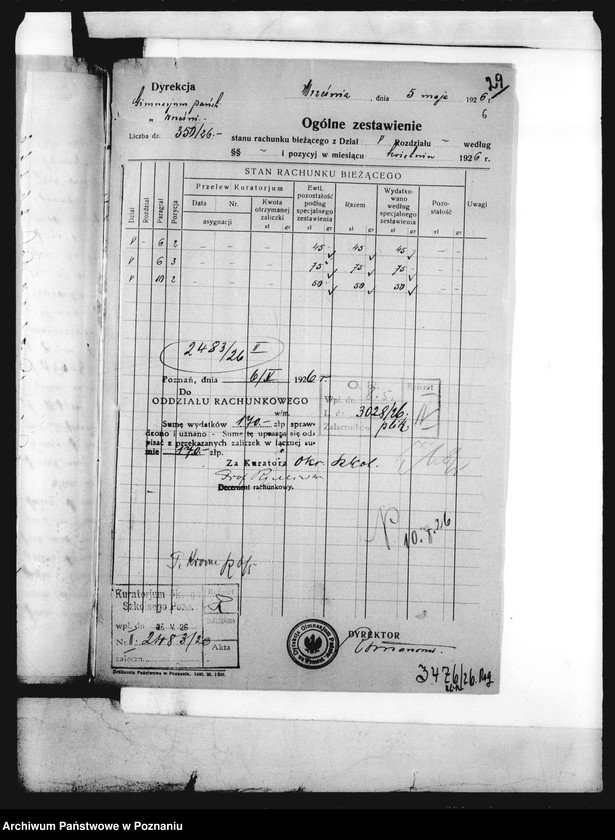 29
Dyrekcja
Września, dnia 5 maja 1926 r.
6
Gimnazyum państ.
w Wrześni.-
Liczba dz. 350/26.-
Ogólne zestawienie
stanu rachunku bieżącego z Dział V Rozdziału ~ według
§§ ~ i pozycyj w miesiącu kwietniu 1926 r.
STAN RACHUNKU BIEŻĄCEGO
Dział
Rozdział
Paragraf
Pozycja
Przelew Kuratorjum
Data
Nr.
asygnacji
Kwota otrzymanej zaliczki
zł gr
Ewtl. pozostałość podług specjalnego zestawienia
zł gr
Razem
zł gr
Wydatkowano według specjalnego zestawienia
zł gr
Pozostałość
zł gr
Uwagi
V - 6 2 - - - 45 - 45 - 45 - - -
V 6 3 - - - 75 - 75 75 - - -
V 10 2 - - - 50 50 50 - - -
2483/26 II
Poznań, dnia 6/V 1926 r.
Do
ODDZIAŁU RACHUNKOWEGO
w/m.
Sumę wydatków 170.- złp spraw-
dzono i uznano - Sumę tę uprasza się od-
pisać z przekazanych zaliczek w łącznej su-
mie 170.- złp.
Za Kuratora Okr. Szkol.
Decernent rachunkowy.
O. R.
Referat
Wpł. dn.
L. dz. 3028/26.
Załączników
N. 10.8.26
Kuratorjum
Szkolnego Pozn.
wpł. dn. 6 V. 26
Nr. II: 2483/26
załączn.
Akta
DYREKTOR
3476/26. Rg
Drukarnia Państwowa w Poznaniu.
Archiwum Państwowe w Poznaniu